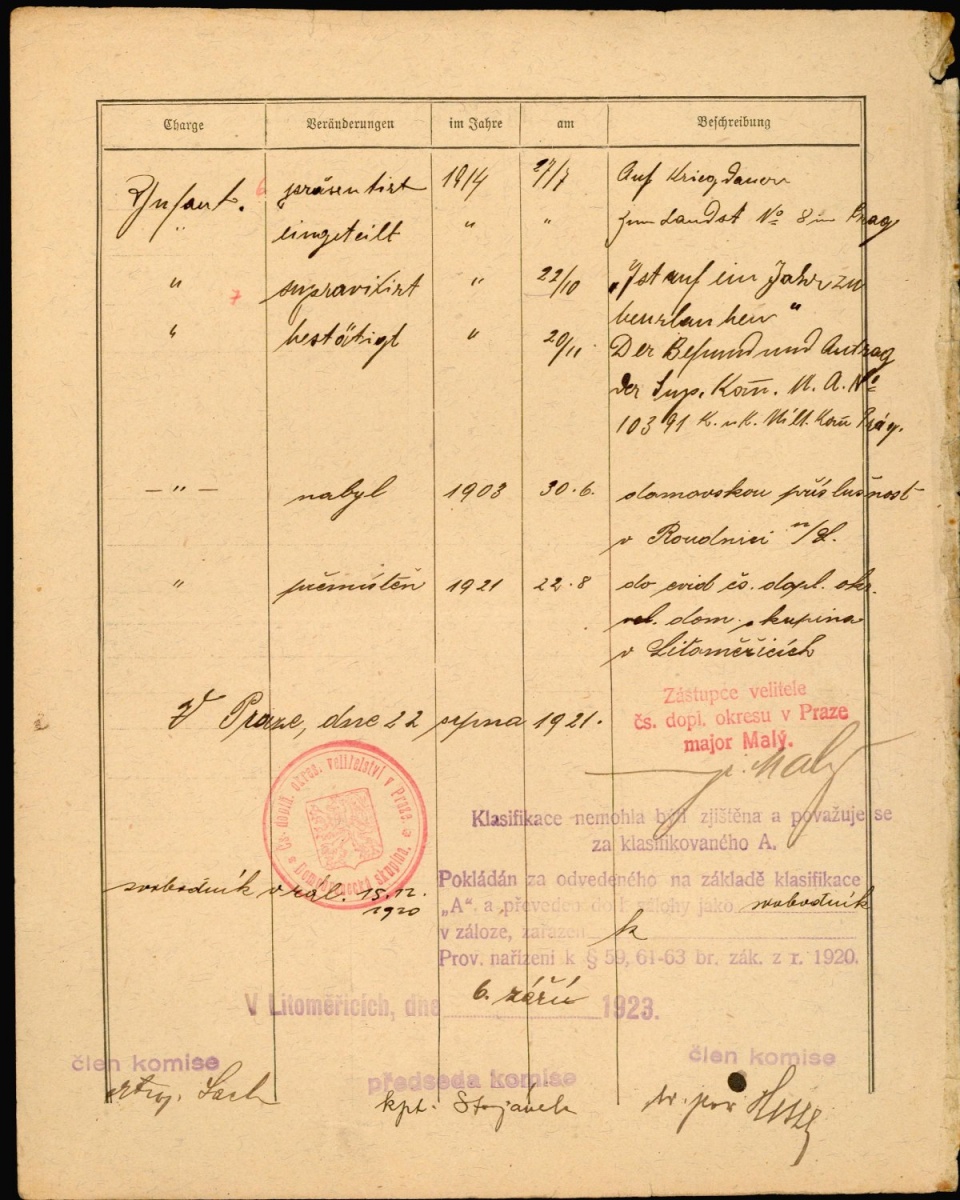 Charge Veränderungen im Jahre am Beschreibung
Infant. präsentirt 1914 27/7 Auf Kriegsdauer
" eingeteilt " " zum Landst No 8 in Prag
" supravisirt " 22/10 „Ist auf ein Jahr zu
beurlauben"
" bestätigt " 20/11 Der Befund und Antrag
der Sup. Kom̄. M. A. No
10391 K. u K. Milt. Kom̄ Prag.
— " — nabyl 1903 30.6. domovskou příslušnost
v Roudnici n/L.
" přemístěn 1921 22.8 do evid čs. dopl. okr.
vel. dom. skupina
v Litoměřicích
V Praze, dne 22 srpna 1921.
Zástupce velitele
čs. dopl. okresu v Praze
major Malý.
Malý
Čs. dopln. okres. velitelství v Praze
Domobranecká skupina.
Klasifikace nemohla býti zjištěna a považuje se
za klasifikovaného A.
svobodník v zál. 15.12.
1920
Pokládán za odvedeného na základě klasifikace
„A" a převeden do I. zálohy jako svobodník
v záloze, zařazen k
Prov. nařízení k § 59, 61-63 br. zák. z r. 1920.
V Litoměřicích, dne 6. září 1923.
člen komise předseda komise člen komise
kpt.